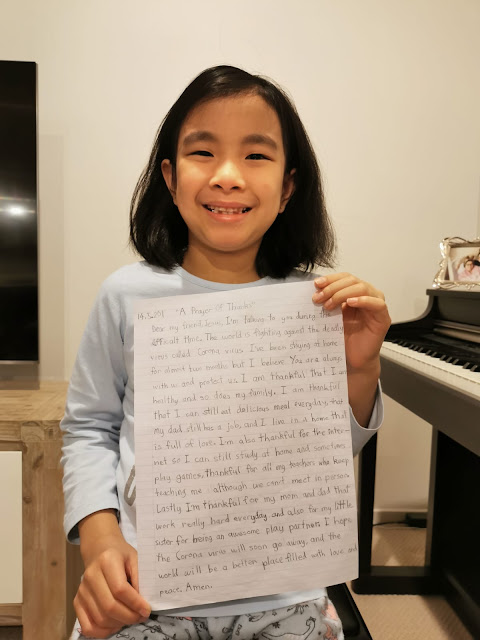 "A Prayer Of Thanks"
Dear my friend Jesus, I'm talking to you during the
difficult times. The world is fighting against the deadly
virus called Corona virus. I've been staying at home
for almost two months but I believe You are always
with us and protect us. I am thankful that I am
healthy and so does my family. I am thankful
that I can still eat delicious meal everyday, that
my dad still has a job, and I live in a home that
is full of love. I'm also thankful for the inter-
net so I can still study at home and sometimes
play games, thankful for all my teachers who keep
teaching me although we can't meet in person.
Lastly I'm thankful for my mom and dad that
work really hard everyday and also for my little
sister for being an awesome play partner. I hope
the Corona virus will soon go away, and the
world will be a better place filled with love and
peace. Amen.